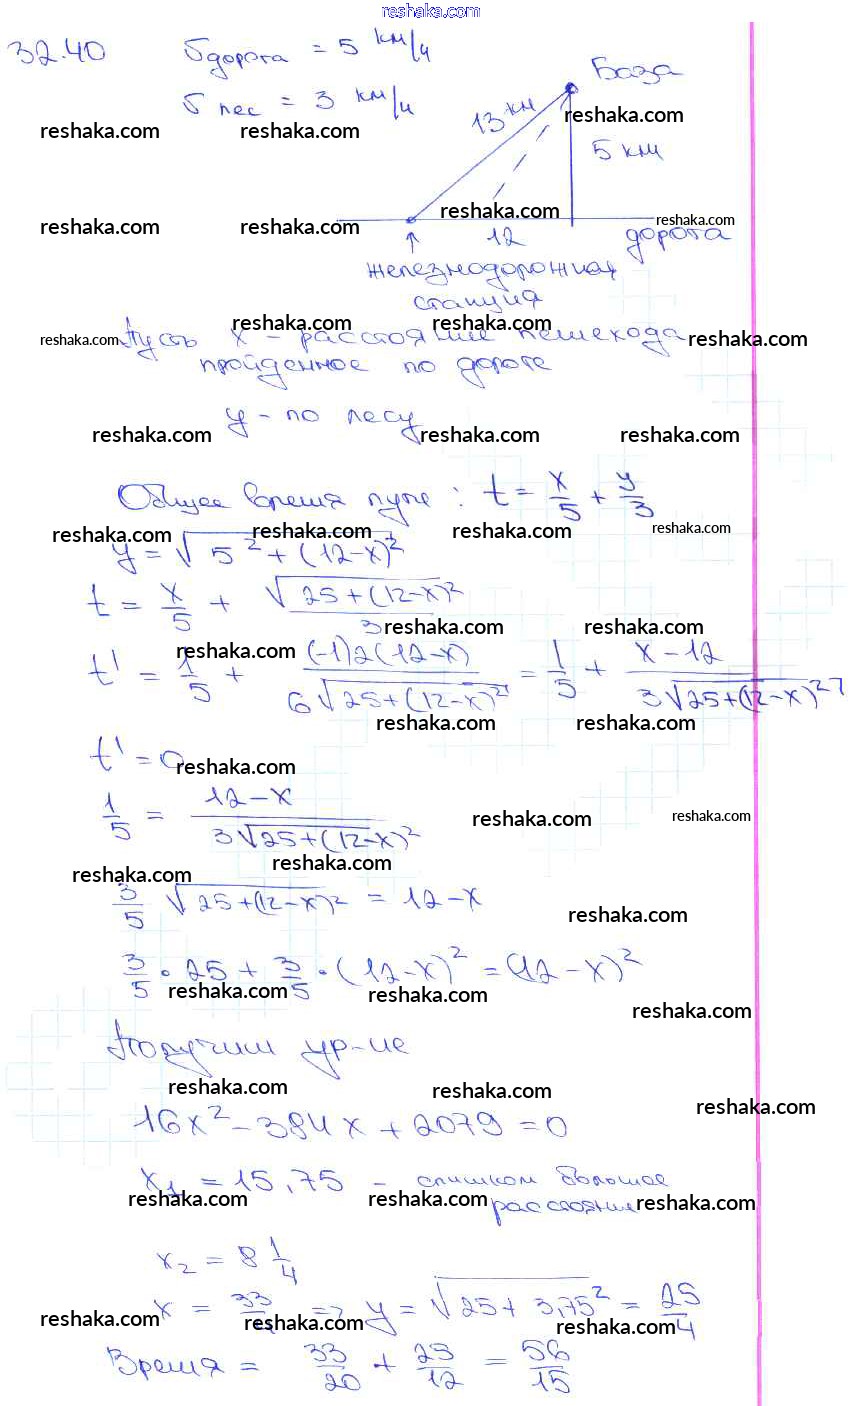 reshaka.com
32.40 υ дорога = 5 км/ч
База
υ лес = 3 км/ч
13 км
reshaka.com reshaka.com reshaka.com
5 км
reshaka.com reshaka.com reshaka.com reshaka.com
12 дорога
железнодорожная
станция
reshaka.com reshaka.com
reshaka.com Пусть x - расстояние пешехода reshaka.com
пройденное по дороге
y - по лесу
reshaka.com reshaka.com reshaka.com
Общее время пути: t = x/5 + y/3
reshaka.com reshaka.com reshaka.com reshaka.com
y = √(5² + (12-x)²)
t = x/5 + √(25+(12-x)²)/3
reshaka.com reshaka.com
reshaka.com
t' = 1/5 + (-1)2(12-x)/(6√(25+(12-x)²)) = 1/5 + (x-12)/(3√(25+(12-x)²))
reshaka.com reshaka.com
t' = 0
reshaka.com
1/5 = (12-x)/(3√(25+(12-x)²))
reshaka.com reshaka.com
reshaka.com reshaka.com
3/5 √(25+(12-x)²) = 12-x
reshaka.com
3/5 · 25 + 3/5 · (12-x)² = (12-x)²
reshaka.com reshaka.com
reshaka.com
Получим ур-ие
reshaka.com reshaka.com reshaka.com
16x² - 384x + 2079 = 0
x₁ = 15,75 - слишком большое
reshaka.com reshaka.com расстояние reshaka.com
x₂ = 8 1/4
x = 33/4 => y = √(25 + 3,75²) = 25/4
reshaka.com reshaka.com reshaka.com
Время = 33/20 + 25/12 = 56/15